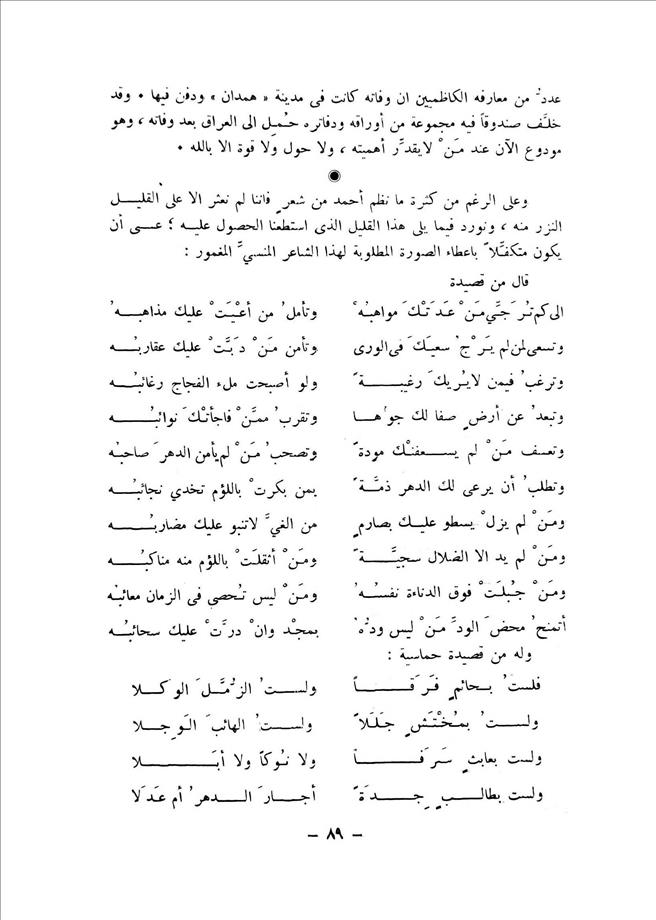 عددٌ من معارفه الكاظميين ان وفاته كانت في مدينة « همدان » ودفن فيها ٠ وقد
خلَّف صندوقاً فيه مجموعة من أوراقه ودفاتره حُمل الى العراق بعد وفاته ، وهو
مودوع الآن عند مَنْ لايقدِّر أهميته ، ولا حول ولا قوة الا بالله ٠
وعلى الرغم من كثرة ما نظم أحمد من شعرٍ فاننا لم نعثر الا على القليل
النزر منه ، ونورد فيما يلى هذا القليل الذى استطعنا الحصول عليه ؛ عسى أن
يكون متكفِّلاً باعطاء الصورة المطلوبة لهذا الشاعر المنسيِّ المغمور :
قال من قصيدة
الى كم تُرَجِّي مَنْ عَدَتْكَ مواهبُهْ وتأملُ من أعْيَتْ عليك مذاهبُهُ
وتسعى لمن لم يَرْجُ سعيَكَ في الورى وتأمن مَنْ دَبَّتْ عليك عقاربُه
وترغبُ فيمن لايُريك رغيبةً ولو أصبحت ملء الفجاج رغائبُه
وتبعدُ عن أرضٍ صفا لك جوها وتقربُ ممَّنْ فاجأتْكَ نوائبُه
وتعسف مَنْ لم يسعفنْك مودةً وتصحبُ مَنْ لم يأمن الدهرَ صاحبُه
وتطلبُ أن يرعى لك الدهر ذمَّةً بمن بكرتْ باللؤم تخدي نجائبُه
ومَنْ لم يزلْ يسطو عليك بصارمٍ من الغيِّ لاتنبو عليك مضاربُه
ومَنْ لم يد الا الضلال سجيَّةً ومَنْ أثقلَتْ باللؤم منه مناكبُه
ومَنْ جُبلَتْ فوق الدناءة نفسُهُ ومَنْ ليس تُحصى في الزمان معائبُه
أتمنحُ محضَ الودِّ مَنْ ليس ودُّهُ بمجْد وانْ درَّتْ عليك سحائبُه
وله من قصيدة حماسية :
فلستُ بحائمٍ فَرَقاً ولستُ الزُّمَّلَ الوكلا
ولستُ بمُخْتَشٍ جَلَلاً ولستُ الهائبَ الوَجِلا
ولست بعابثٍ سَرَفاً ولا نُوكاً ولا أبَلا
ولست بطالبٍ جِدَةً أجارَ الدهرُ أم عَدَلا
– ٨٩ –